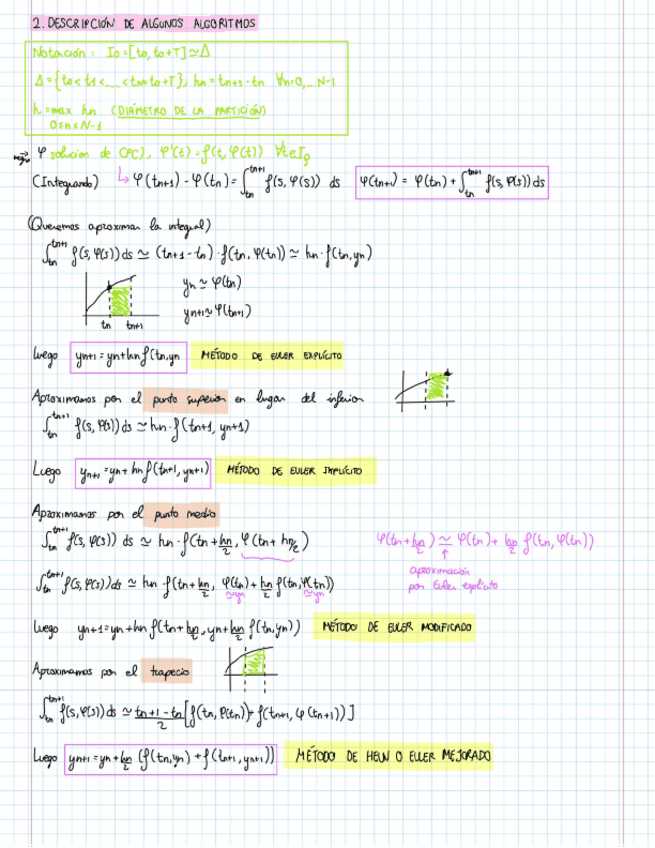 2. DESCRIPCIÓN DE ALGUNOS ALGORITMOS
Notación: I₀=[t₀,t₀+T]≃Δ
Δ={t₀<t₁<...<tN=t₀+T}, hn=tn+1-tn ∀n=0,...N-1
h=max hn (DIÁMETRO DE LA PARTICIÓN)
0≤n≤N-1
φ solución de (PC), φ'(t)=f(t,φ(t)) ∀t∈I₀
(Integrando) ↳ φ(tn+1)-φ(tn)=∫tn^tn+1 f(s,φ(s)) ds φ(tn+1)=φ(tn)+∫tn^tn+1 f(s,φ(s))ds
(Queremos aproximar la integral)
∫tn^tn+1 f(s,φ(s))ds≃(tn+1-tn)·f(tn,φ(tn))≃hn·f(tn,yn)
yn≃φ(tn)
yn+1≃φ(tn+1)
tn tn+1
luego yn+1=yn+hnf(tn,yn MÉTODO DE EULER EXPLÍCITO
Aproximamos por el punto superior en lugar del inferior
∫tn^tn+1 f(s,φ(s))ds≃hn·f(tn+1,yn+1)
Luego yn+1=yn+hnf(tn+1,yn+1) MÉTODO DE EULER IMPLÍCITO
Aproximamos por el punto medio
∫tn^tn+1 f(s,φ(s)) ds ≃ hn·f(tn+hn/2,φ(tn+hn/2) φ(tn+hn/2)≃φ(tn)+hn/2 f(tn,φ(tn))
↑
aproximación
por Euler explícito
∫tn^tn+1 f(s,φ(s))ds≃hn f(tn+hn/2, φ(tn)+hn/2 f(tn,φ(tn))
≃yn ≃yn
luego yn+1=yn+hnf(tn+hn/2,yn+hn/2 f(tn,yn)) MÉTODO DE EULER MODIFICADO
Aproximamos por el trapecio
∫tn^tn+1 f(s,φ(s))ds≃tn+1-tn/2[f(tn,φ(tn))+f(tn+1,φ(tn+1))]
Luego yn+1=yn+hn/2(f(tn,yn)+f(tn+1,yn+1)) MÉTODO DE HEUN O EULER MEJORADO